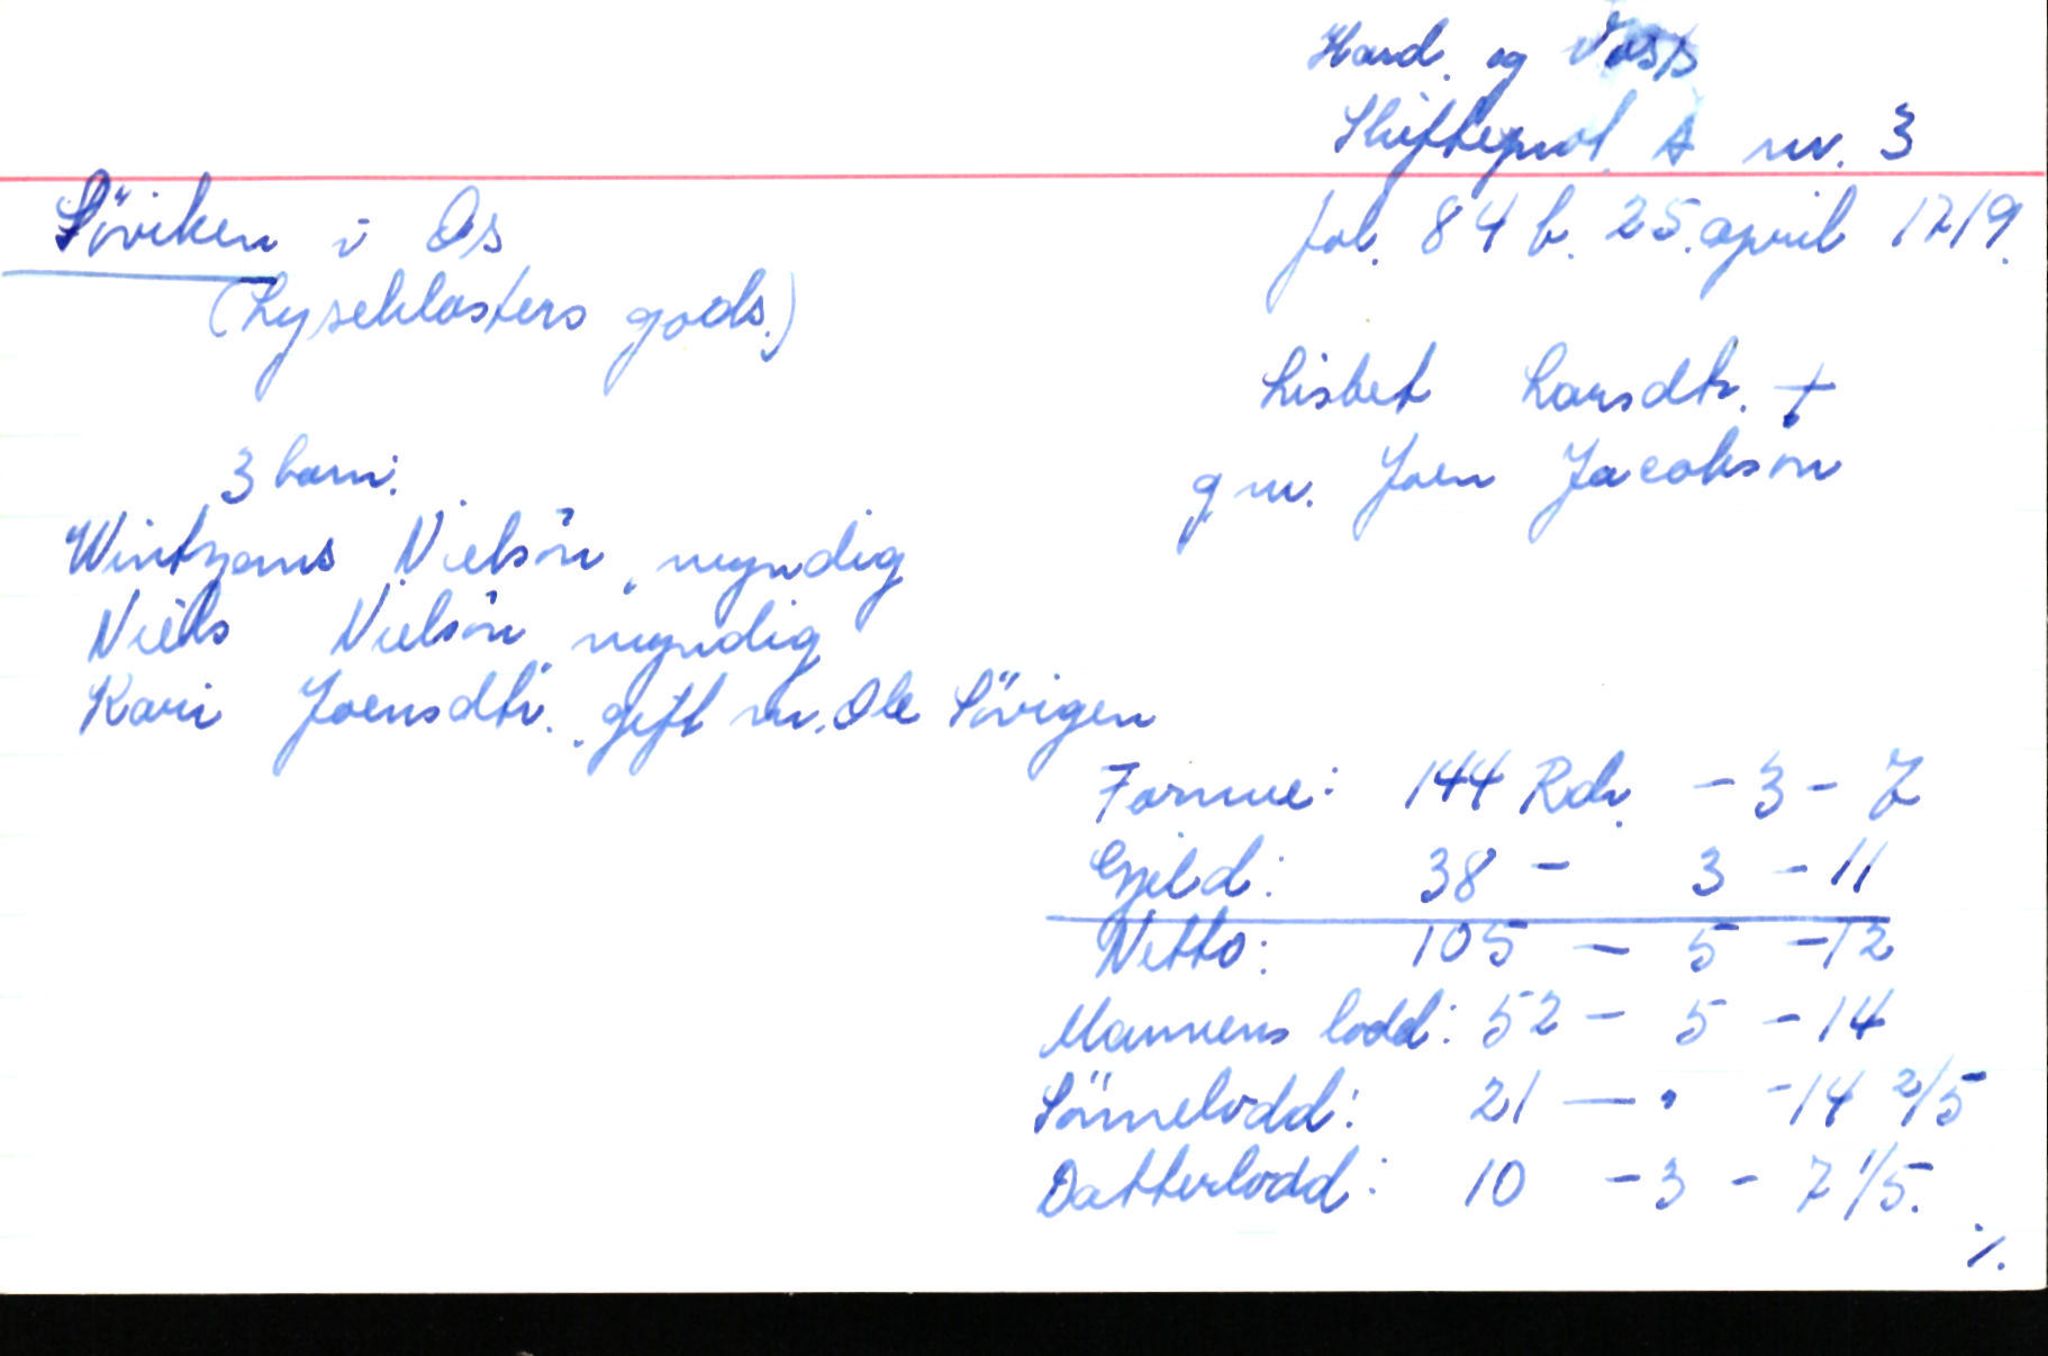 Hard. og Voss
Skifteprot. A nr. 3
Söviken i Os
fol. 84 b. 25. april 1719.
(Lyseklosters gods.)
Lisbet Larsdtr. †
gm. Joen Jacobsön
3 barn:
Wintzens Nielsön, myndig
Niels Nielsön myndig
Kari Joensdtr. gift m. Ole Sövigen
Formue: 144 Rdr. - 3 - 7
Gjeld: 38 - 3 - 11
Netto: 105 - 5 - 12
Mannens lodd: 52 - 5 - 14
Sönnelodd: 21 — • - 14 2/5
Datterlodd: 10 - 3 - 7 1/5.
./.